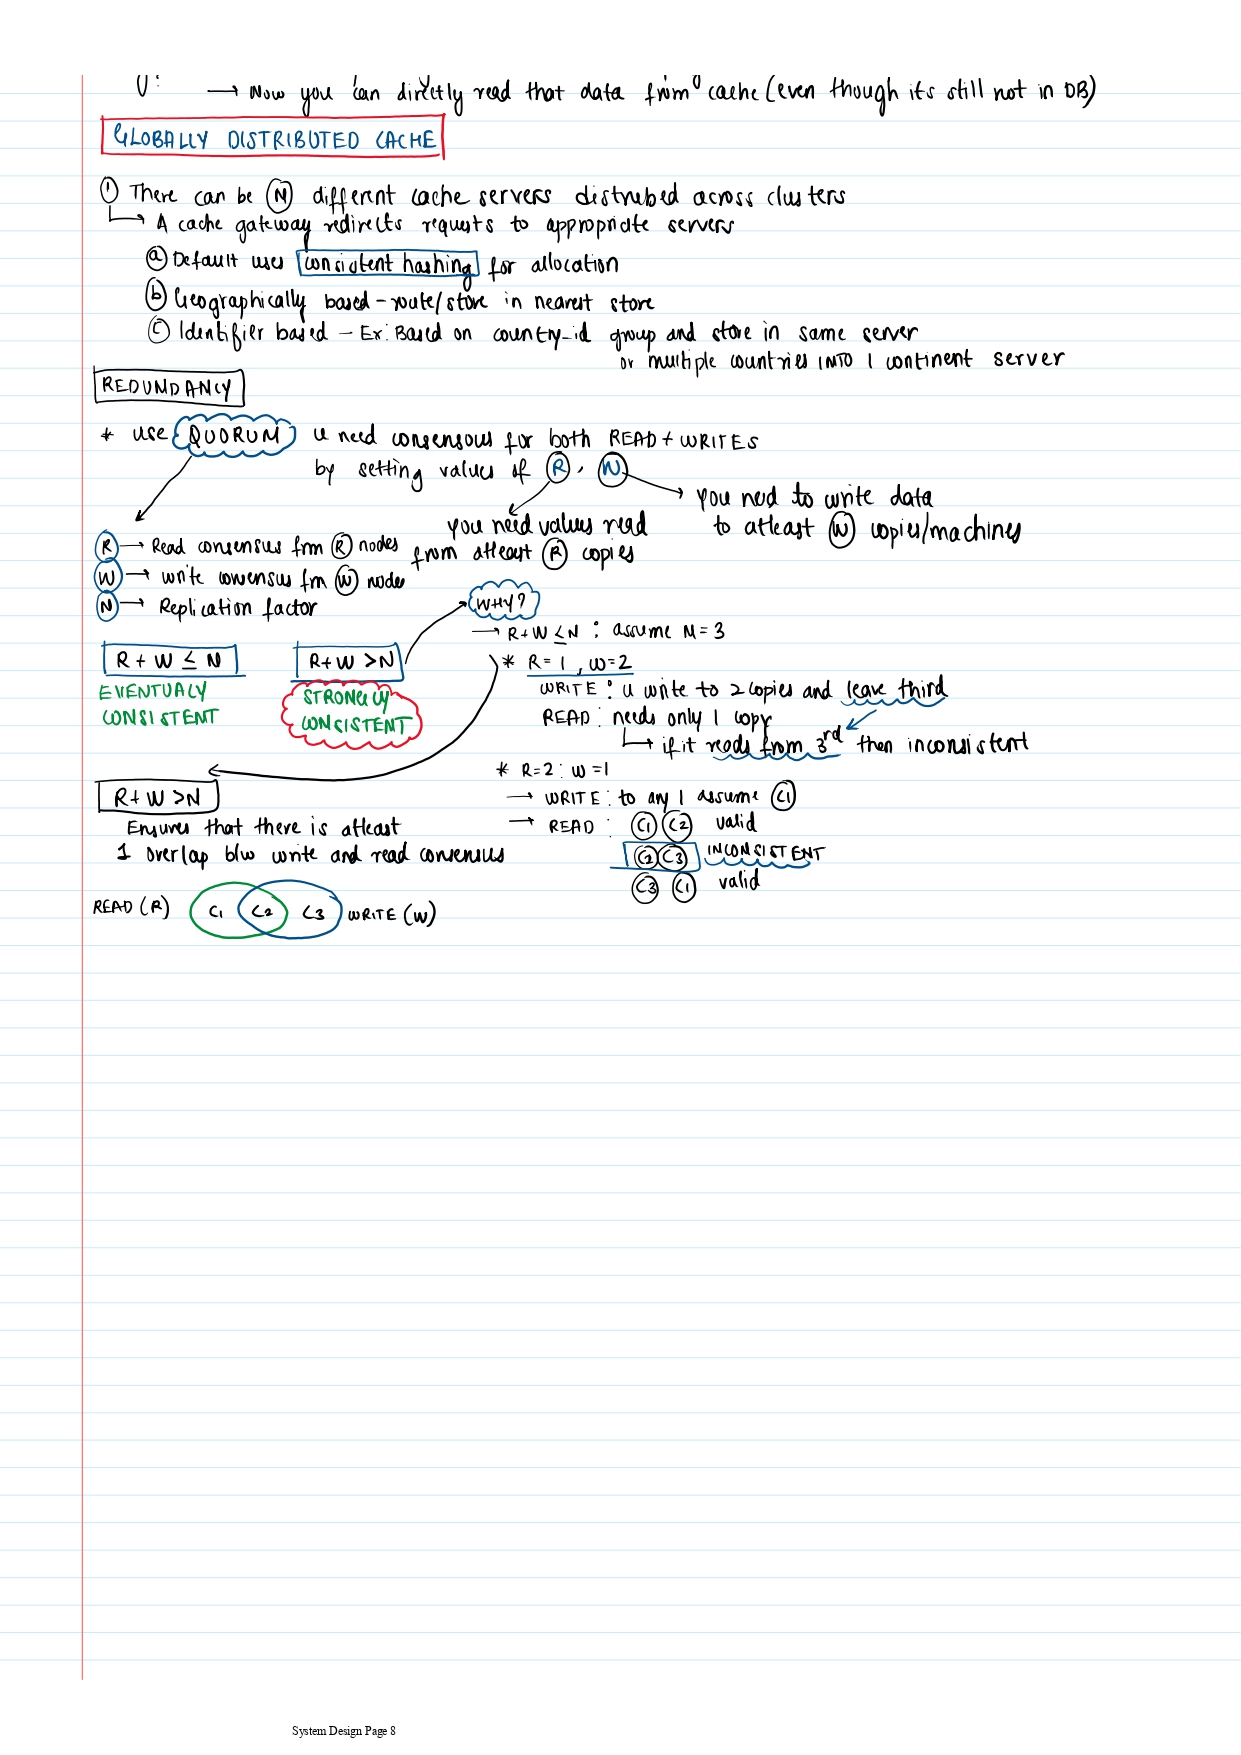 → Now you can directly read that data from cache (even though its still not in DB)
GLOBALLY DISTRIBUTED CACHE
① There can be Ⓝ different cache servers distrubed across clusters
↳ A cache gateway redirects requests to appropriate servers
ⓐ Default uses consistent hashing for allocation
ⓑ Geographically based - route/store in nearest store
ⓒ Identifier based - Ex: Based on country-id group and store in same server
or multiple countries INTO 1 continent server
REDUNDANCY
* use QUORUM u need consensous for both READ + WRITES
by setting values of Ⓡ, Ⓦ
→ you need to write data
to atleast Ⓦ copies/machines
you need values read
from atleast Ⓡ copies
Ⓡ → Read consensus frm Ⓡ nodes
Ⓦ → write consensus frm Ⓦ nodes
Ⓝ → Replication factor
R + W ≤ N
EVENTUALY
CONSISTENT
R + W > N
STRONGLY
CONSISTENT
WHY?
→ R+W ≤ N : assume N = 3
* R = 1, W = 2
WRITE : u write to 2 copies and leave third
READ : needs only 1 copy
↳ if it reads from 3rd then inconsistent
* R=2 : W=1
→ WRITE : to any 1 assume C1
→ READ : C1 C2 valid
C2 C3 INCONSISTENT
C3 C1 valid
R + W > N
Ensures that there is atleast
1 overlap b/w write and read consensus
READ (R) C1 C2 C3 WRITE (W)
System Design Page 8